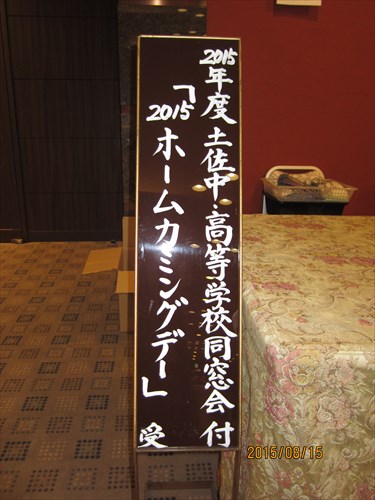 2015年度土佐中・高等学校同窓会
「2015ホームカミングデー」
受付
2015/08/15